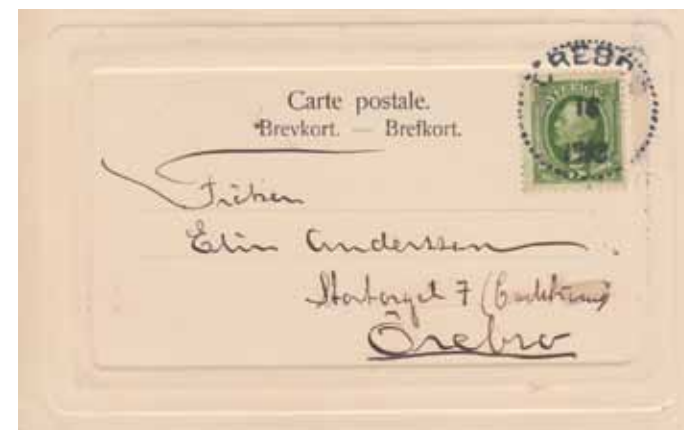 Carte postale.
Brevkort. — Brefkort.
ÖREBRO
SVERIGE
16
Fröken
Elin Andersson
Stortorget 7
Örebro